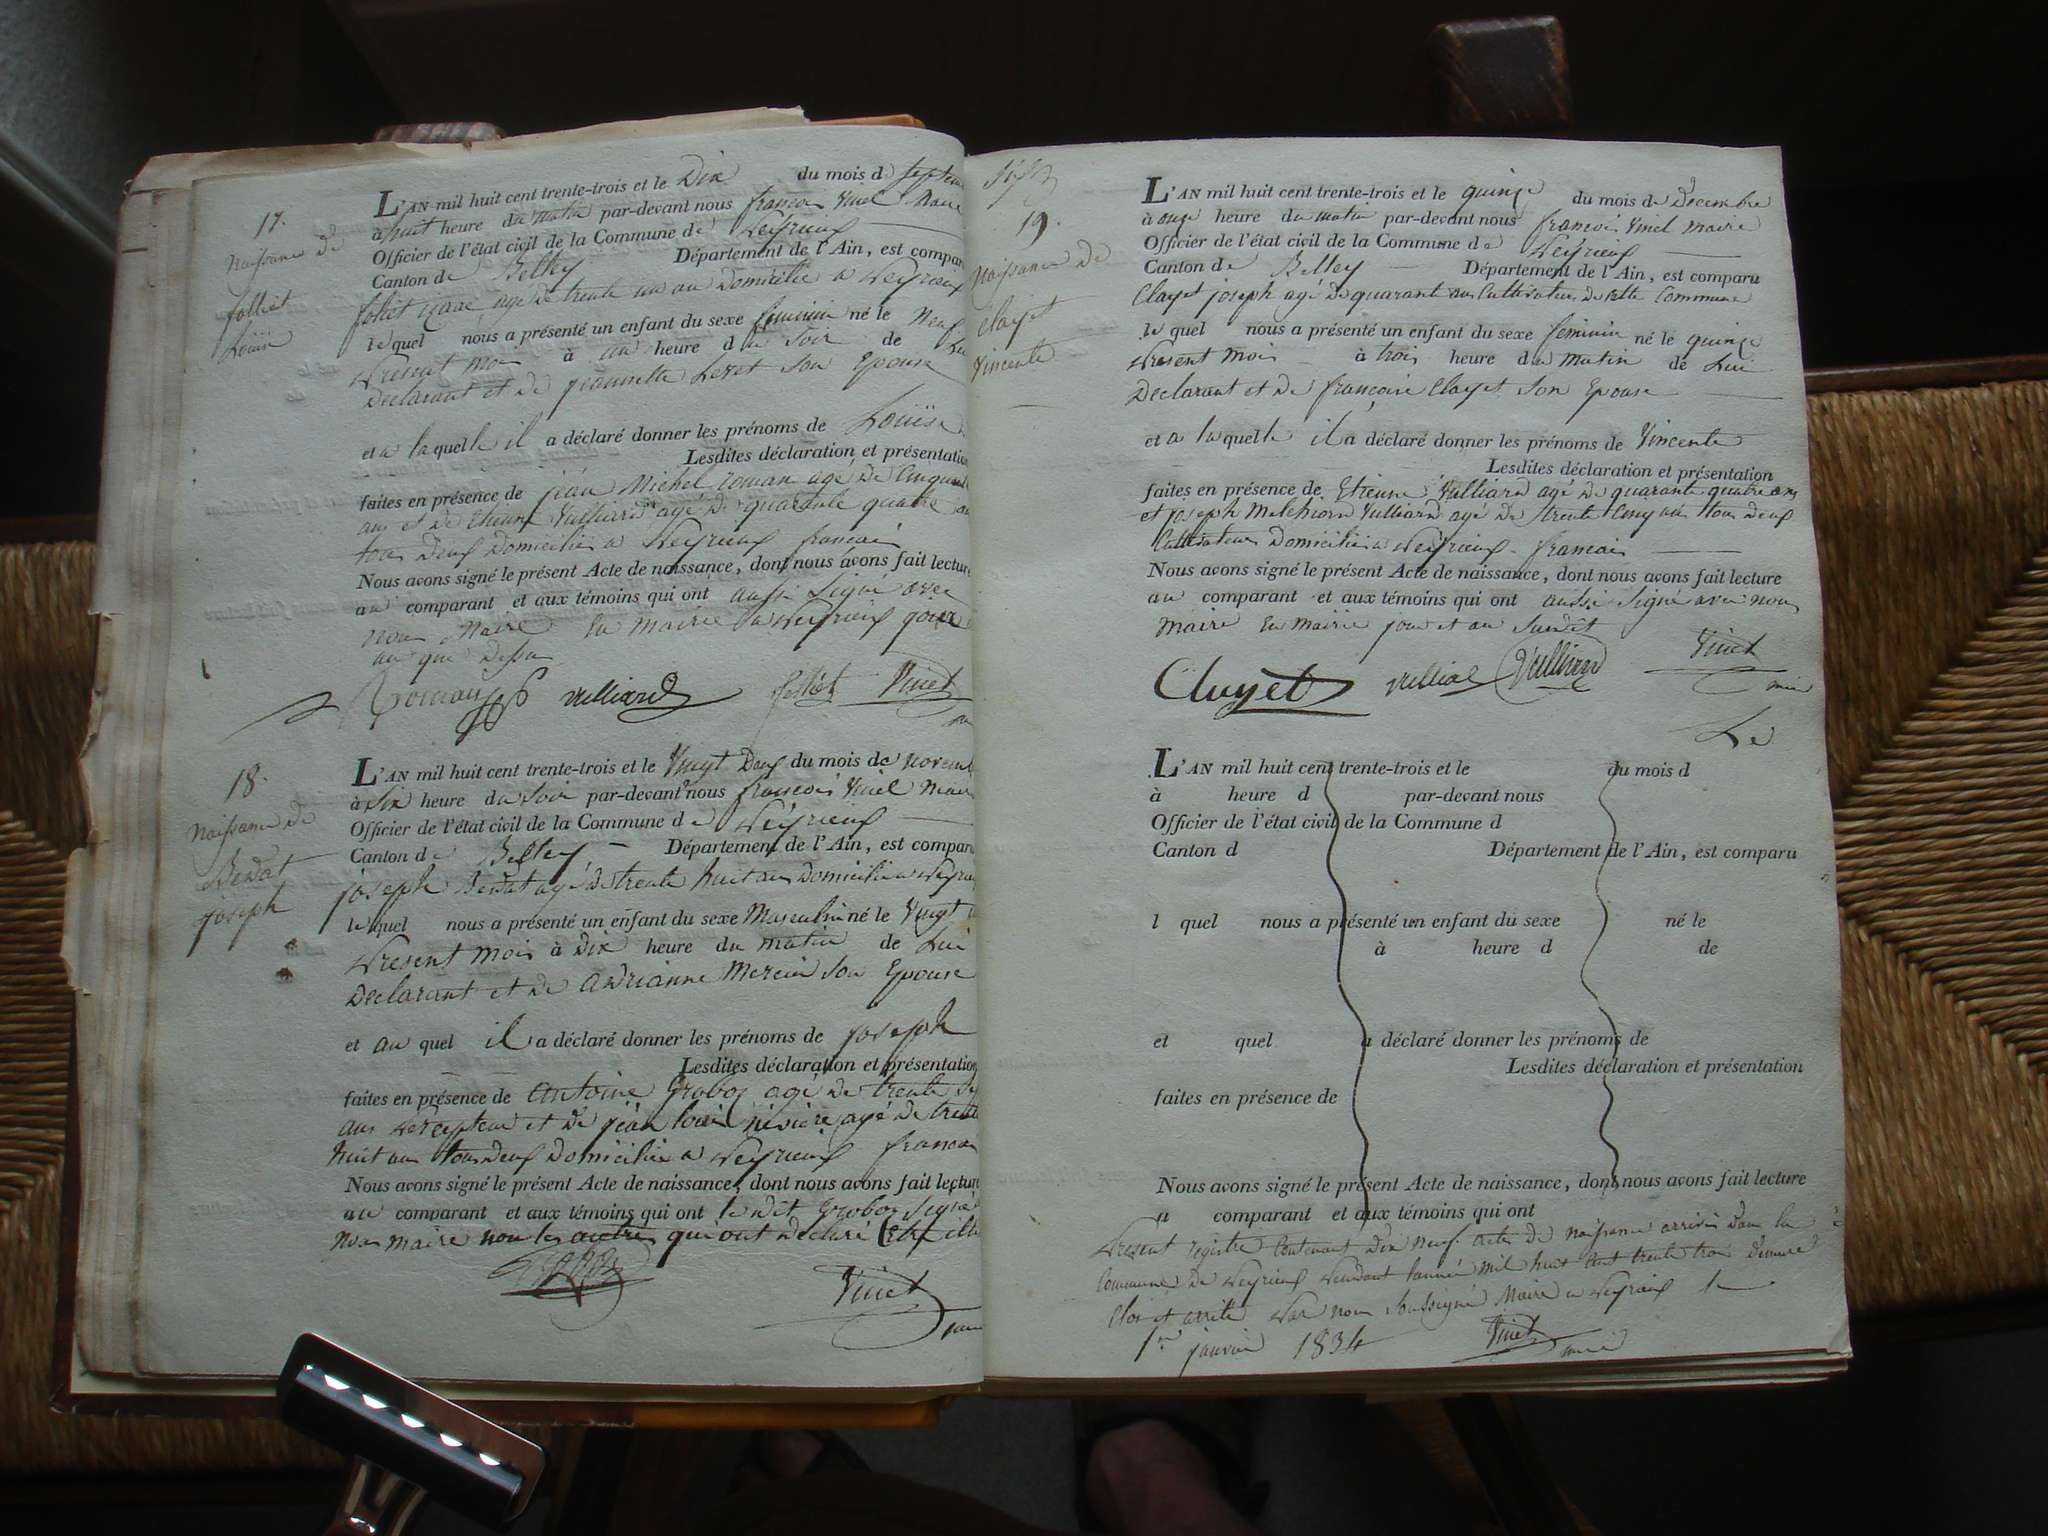 17.
Naissance de
Jolliet
Louise
L'AN mil huit cent trente-trois et le Dix du mois d septem
à huit heure du matin par-devant nous francois Vinet Maire
Officier de l'état civil de la Commune de Peyrieux
Canton de Belley Département de l'Ain, est compar
agé de trente un an Domicilié a Peyrieux
le quel nous a présenté un enfant du sexe feminin né le Neuf
Present moi à un heure du soir de Lui
Declarant et de jeannette son Epouse
et a la quelle il a déclaré donner les prénoms de Louise
Lesdites déclaration et présentation
faites en présence de jean Michel Roman agé de Cinquante
ans et de Etienne Vulliard agé de quarante quatre an
tous deux Domicilié a Peyrieux francais
Nous avons signé le présent Acte de naissance, dont nous avons fait lecture
au comparant et aux témoins qui ont aussi Signé avec
nous Maire En Mairie a Peyrieux jour
an que dessus
Roman Vulliard Jolliet Vinet
18.
Naissance de
Bedat
joseph
L'AN mil huit cent trente-trois et le Vingt Deux du mois de novem
à Six heure du Soir par-devant nous francois Vinet Maire
Officier de l'état civil de la Commune de Peyrieux
Canton de Belley Département de l'Ain, est compar
joseph Bedat agé de trente huit ans Domicilié a Peyrieu
le quel nous a présenté un enfant du sexe Masculin né le Vingt
Present mois à Dix heure du matin de Lui
Declarant et de Adrianne Mercier son Epouse
et au quel il a déclaré donner les prénoms de joseph
Lesdites déclaration et présentation
faites en présence de Antoine Grobos agé de trente
ans Percepteur et de jean louis riviere agé de trente
huit ans tous deux Domicilié a Peyrieux francais
Nous avons signé le présent Acte de naissance, dont nous avons fait lecture
au comparant et aux témoins qui ont le dit Grobos Signé
Nous maire non les autres qui ont declaré Etre ille
Vinet
maire
19.
Naissance de
Clayet
Vincente
L'AN mil huit cent trente-trois et le quinze du mois de Decembre
à onze heure du matin par-devant nous francois Vinet maire
Officier de l'état civil de la Commune de Peyrieux
Canton de Belley Département de l'Ain, est comparu
Clayet joseph agé de quarante ans Cultivateur de cette Commune
le quel nous a présenté un enfant du sexe feminin né le quinze
Present mois à trois heure du matin de Lui
Declarant et de francoise Clayet son Epouse
et a la quelle il a déclaré donner les prénoms de Vincente
Lesdites déclaration et présentation
faites en présence de Etienne Vulliard agé de quarante quatre ans
et joseph Melchiore Vulliard agé de trente Cinq ans tous deux
Cultivateur Domicilié a Peyrieux francais
Nous avons signé le présent Acte de naissance, dont nous avons fait lecture
au comparant et aux témoins qui ont aussi signé avec nous
Maire En Mairie jour et an Susdit
Cluyet Vulliard Vulliard Vinet
Le
L'AN mil huit cent trente-trois et le du mois d
à heure d par-devant nous
Officier de l'état civil de la Commune d
Canton d Département de l'Ain, est comparu
l quel nous a présenté un enfant du sexe né le
à heure d de
et quel a déclaré donner les prénoms de
Lesdites déclaration et présentation
faites en présence de
Nous avons signé le présent Acte de naissance, dont nous avons fait lecture
a comparant et aux témoins qui ont
Present registre Contenant Dix neuf actes de naissance arrivés dans la
Commune de Peyrieux Pendant l'année mil huit Cent trente trois Demeure
Clos et arrêté Par nous Soussigné Maire a Peyrieux le
1er janvier 1834 Vinet